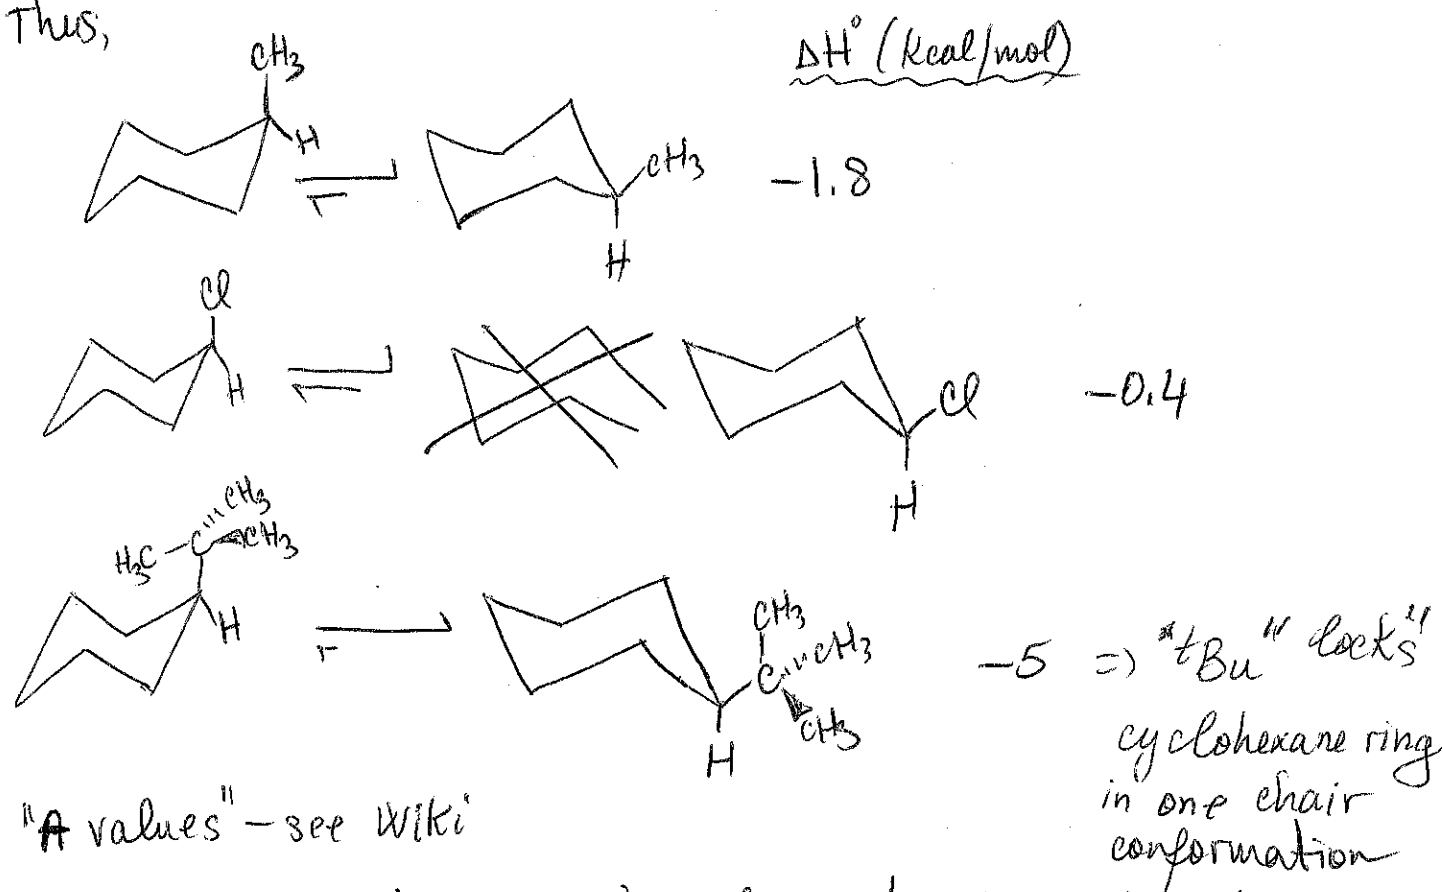 Thus,
ΔH° (kcal/mol)
CH3
H
CH3
H
-1.8
Cl
H
Cl
H
-0.4
CH3
H3C C CH3
H
CH3
C CH3
CH3
H
-5 => "tBu" "locks"
cyclohexane ring
in one chair
conformation
"A values" - see Wiki